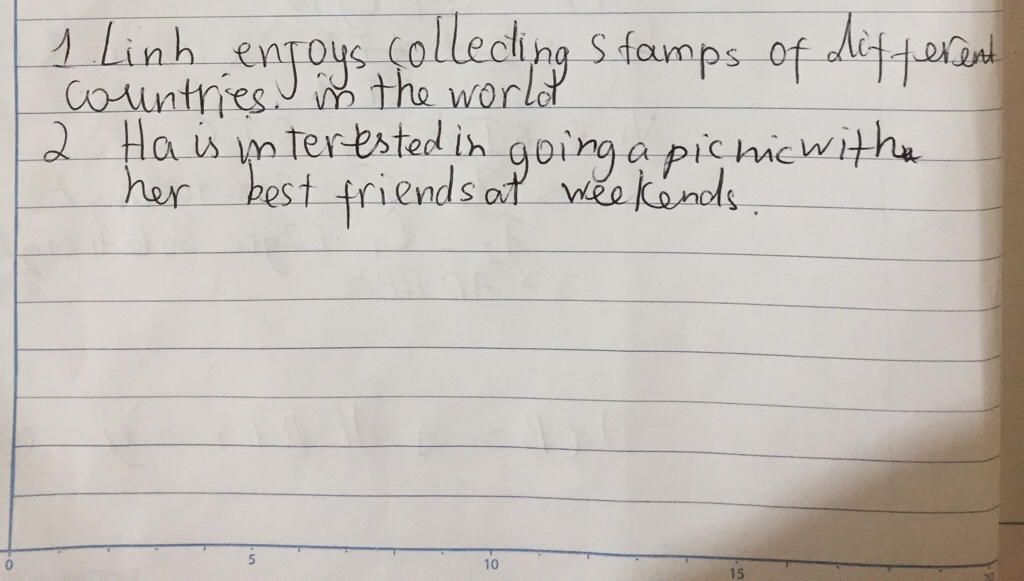 1 Linh enjoys collecting stamps of different
countries. in the world
2 Ha is interested in going a picnic with
her best friends at weekends.
0 5 10 15